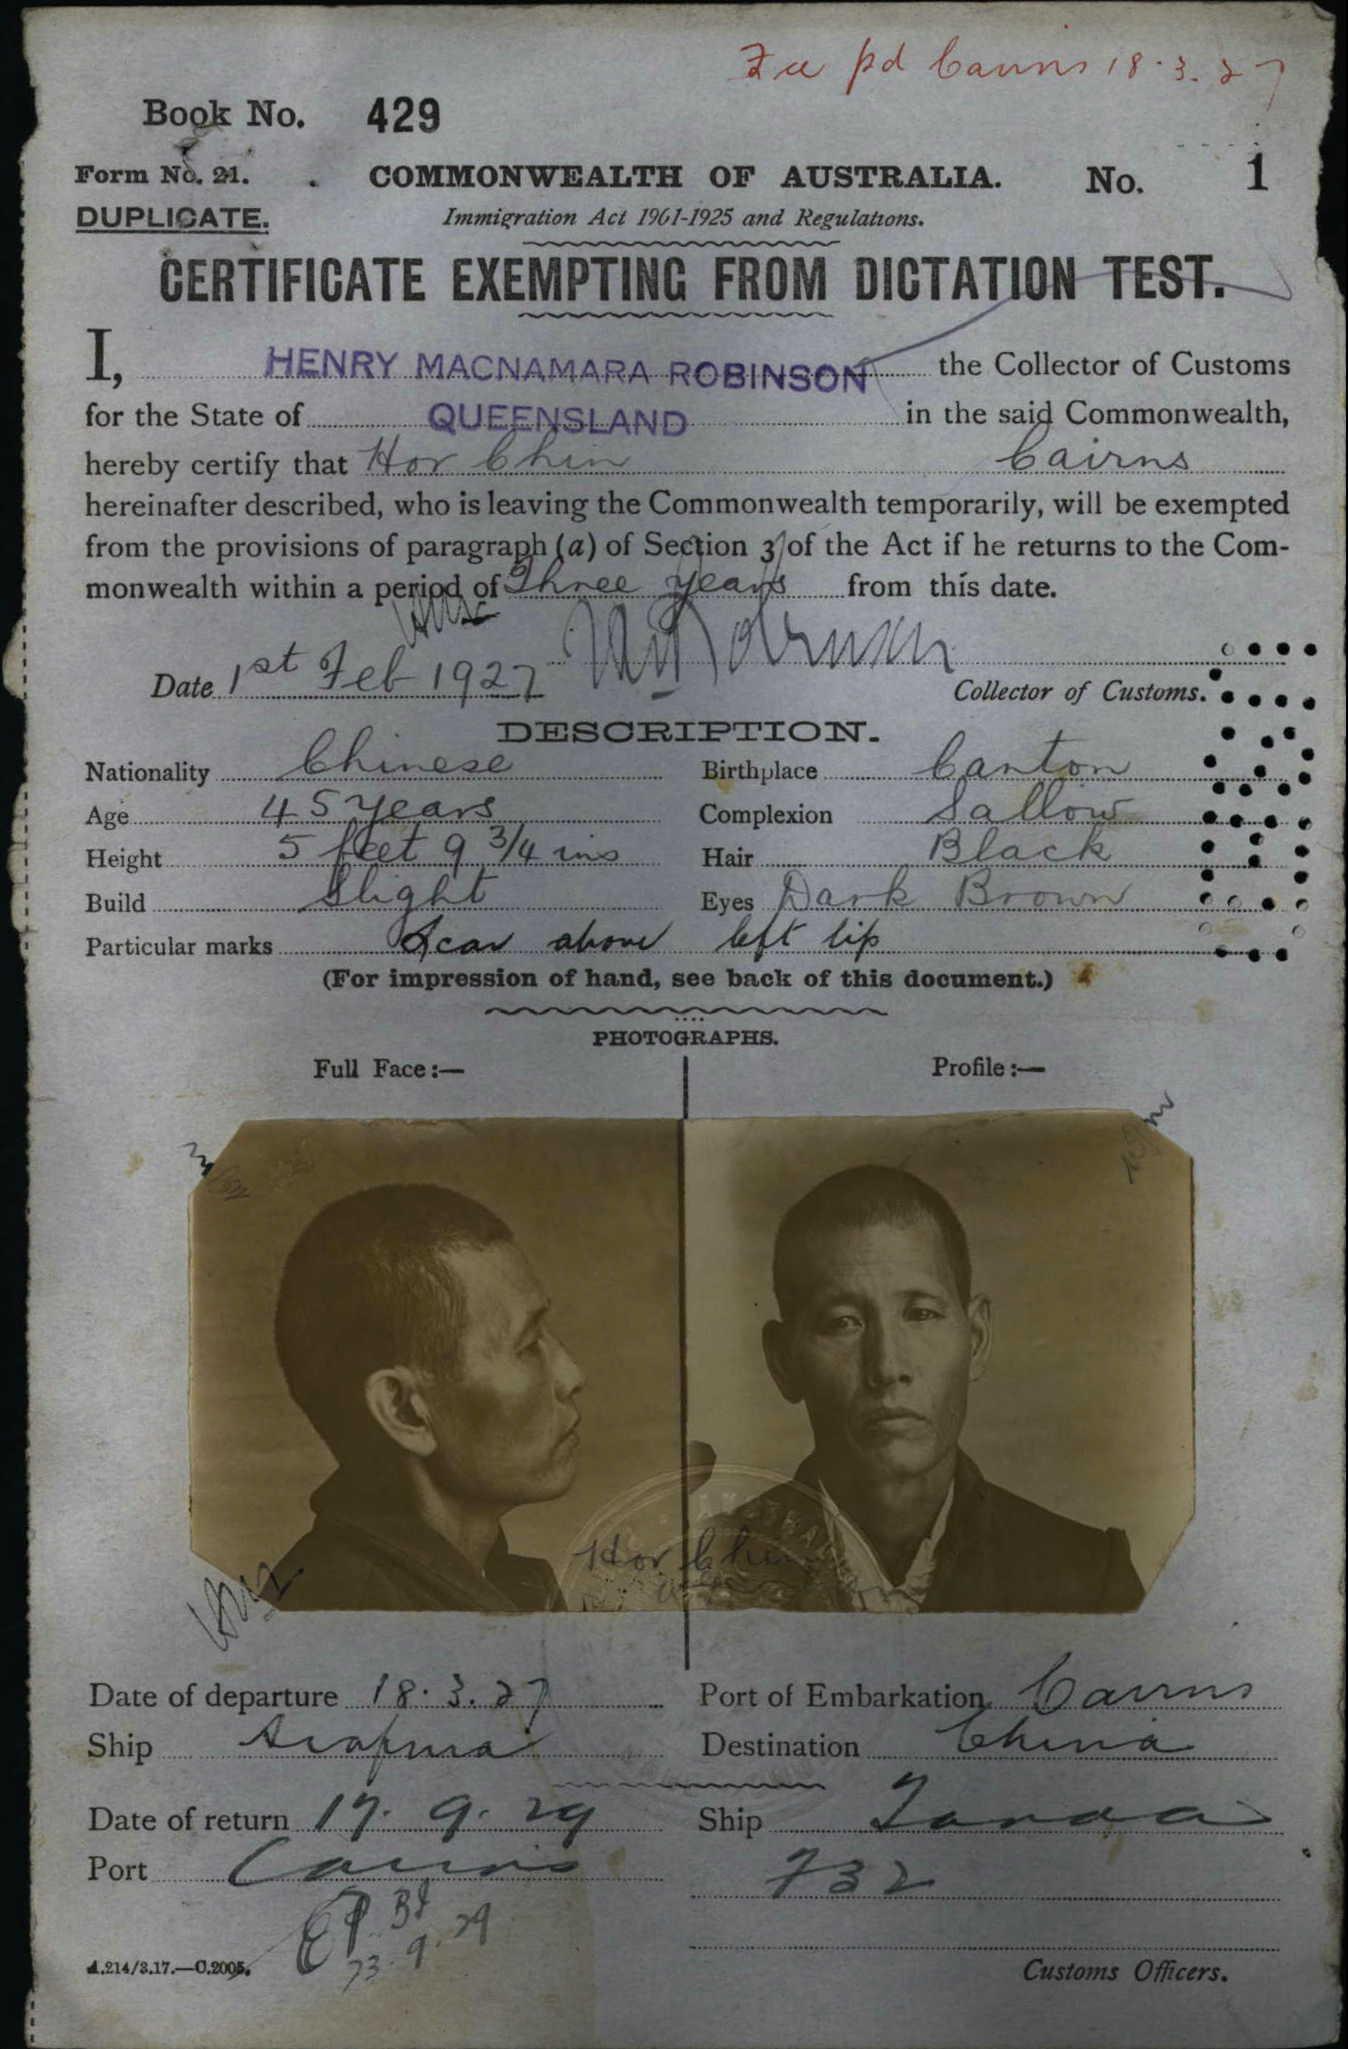 Fee pd Cairns 18.3.27
Book No. 429
Form No. 21. COMMONWEALTH OF AUSTRALIA. No. 1
DUPLICATE. Immigration Act 1901-1925 and Regulations.
CERTIFICATE EXEMPTING FROM DICTATION TEST.
I, HENRY MACNAMARA ROBINSON the Collector of Customs
for the State of QUEENSLAND in the said Commonwealth,
hereby certify that Hor Chin Cairns
hereinafter described, who is leaving the Commonwealth temporarily, will be exempted
from the provisions of paragraph (a) of Section 3 of the Act if he returns to the Com-
monwealth within a period of Three years from this date.
Date 1st Feb 1927
Collector of Customs.
DESCRIPTION.
Nationality Chinese Birthplace Canton
Age 45 years Complexion Sallow
Height 5 feet 9 3/4 ins Hair Black
Build Slight Eyes Dark Brown
Particular marks Scar above left lip
(For impression of hand, see back of this document.)
PHOTOGRAPHS.
Full Face:— Profile:—
Hor Chin
Date of departure 18.3.27 Port of Embarkation Cairns
Ship Arafura Destination China
Date of return 17.9.29 Ship Tanda
Port Cairns 732
23.9.29
A.214/3.17.—C.2005. Customs Officers.